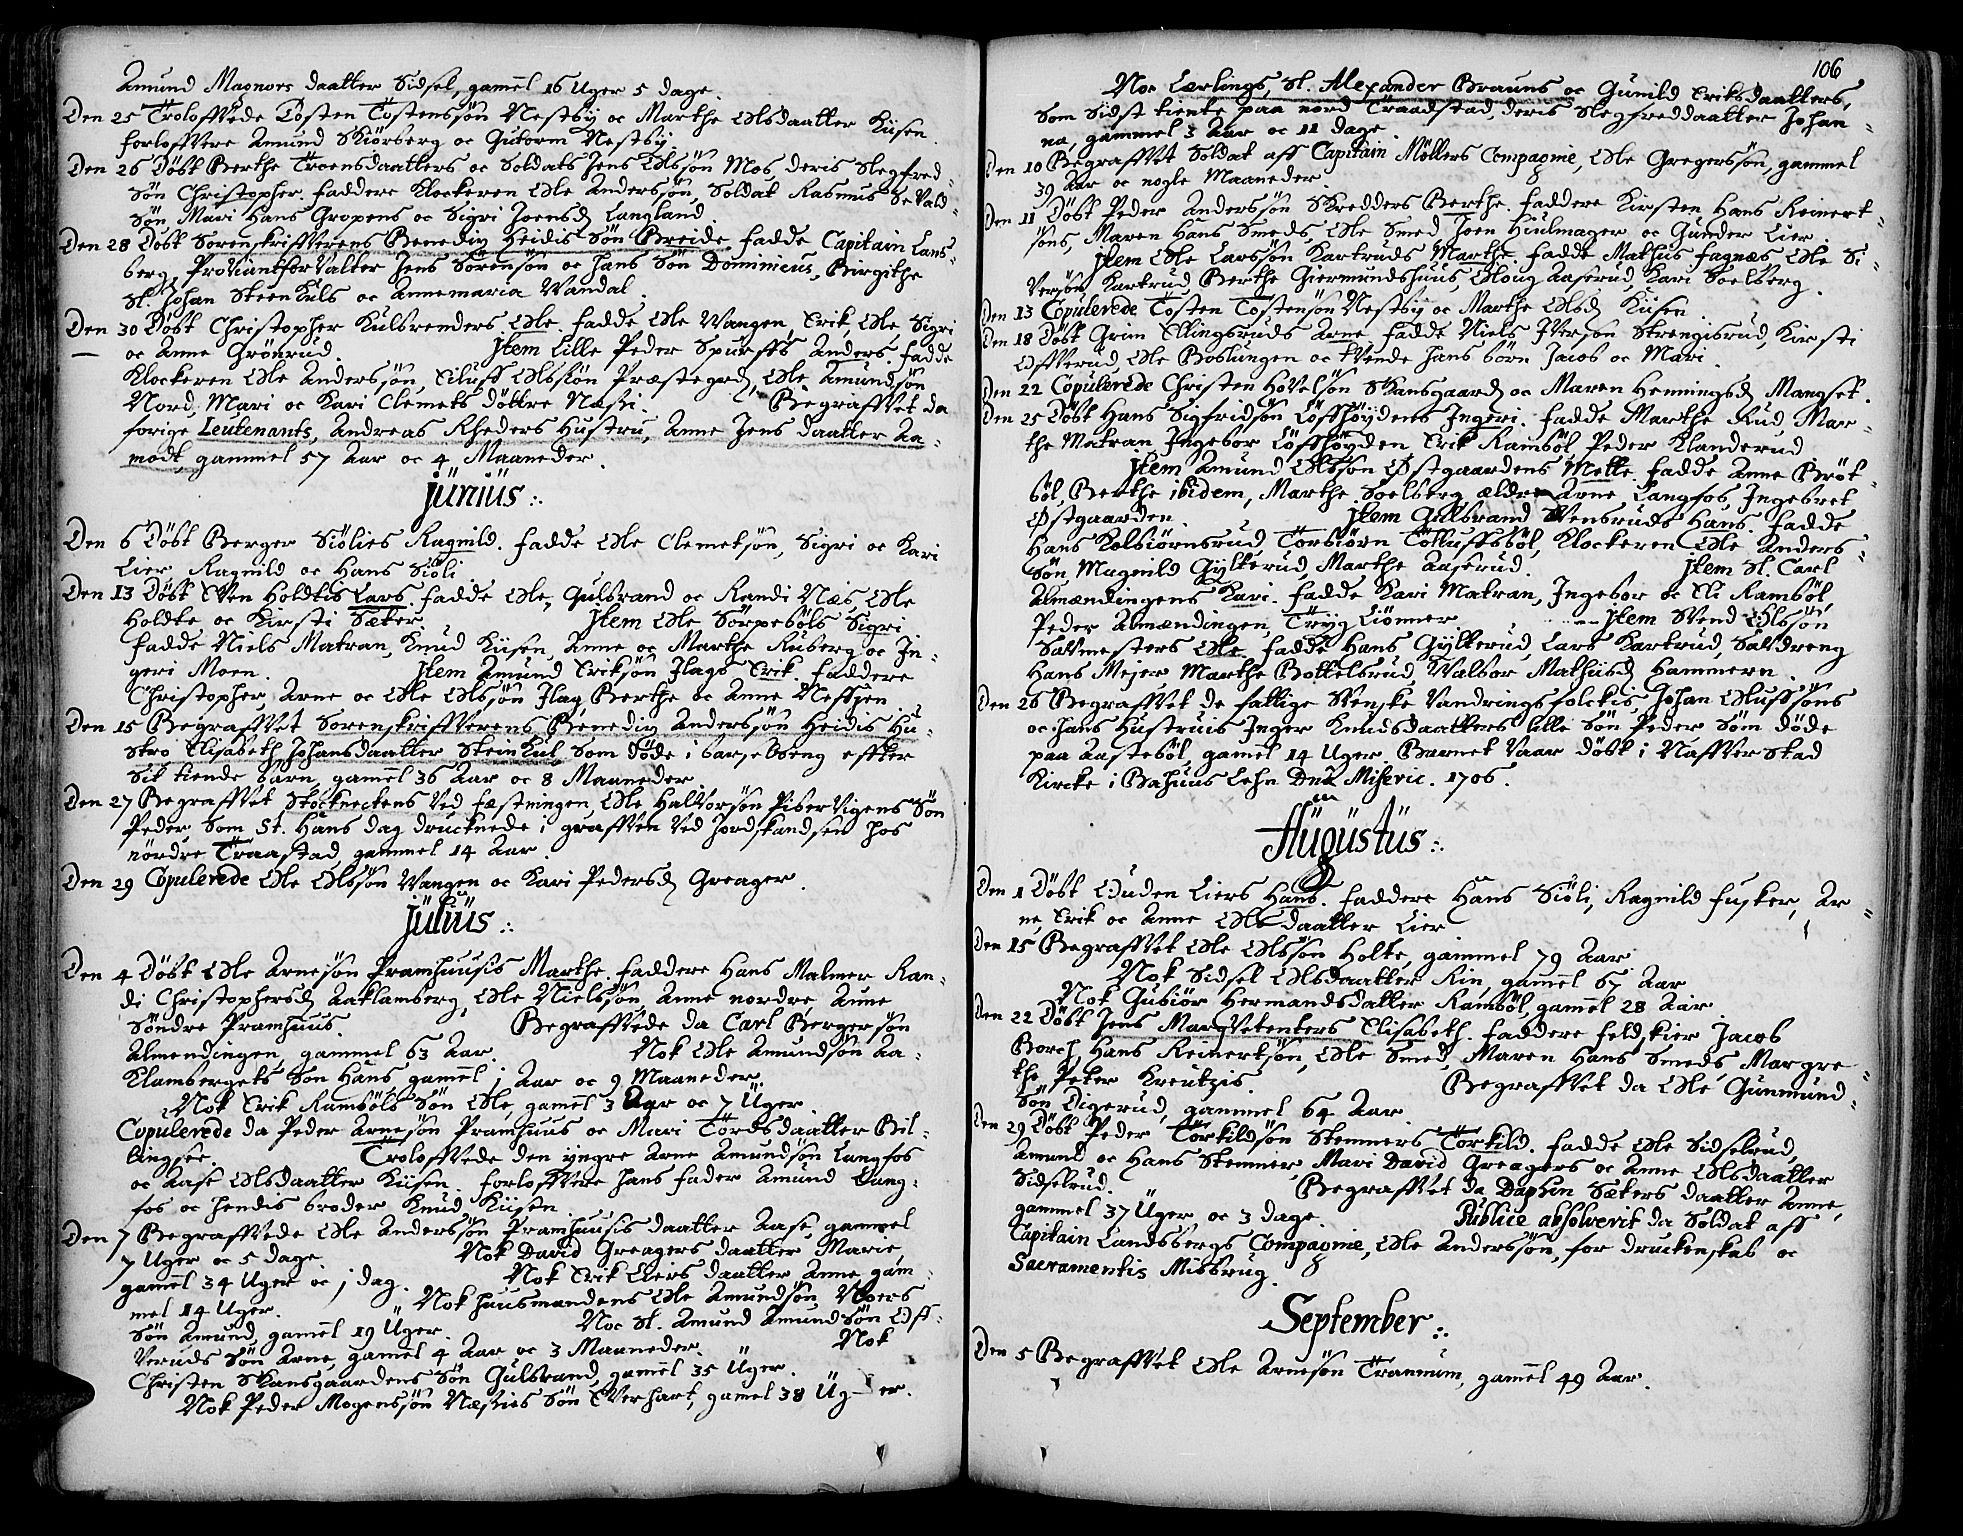 Amund Magnors daatter Sidsel, gamel 16 Uger 5 dage.
Den 25 Troloffvede Tosten Tostenssøn Nestby oc Marthe Olsdaatter Kiisen.
forloffvere Amund Skiørberg oc Gutorm Nestby.
Den 26 Døbt Berthe Troensdaatters oc Soldats Jens Olssøn Mos, deris Slegfred=
Søn Christopher. faddere Klockeren Ole Anderssøn, Soldat Rasmus SeVald=
Søn Mari Hans Gropens oc Sigri Joensd. Langland.
Den 28 Døbt SorenskriffVerens Benedix Heidis Søn Breide. fadde Capitain Lans=
berg, ProViantforValter Jens Sørensøn oc hans Søn Dominicus, Birgithe
Sl. Johan SteenKuls oc Annemaria Wandal.
Den 30 Døbt Christopher Kulbrenders Ole. fadde Ole Wangen, Erik, Ole Sigri
oc Anne Grønrud. Jtem Lille Peder Spurffs Anders. fadde
Klockeren Ole Anderssøn, Eiluff Olssøn Præstegrd, Ole Amundsøn
Nord, Mari oc Kari Clemets døttre Næssi. BegraffVet da
forige Leutenants, Andreas Rheders Hustru, Anne Jens daatter Aa=
modt, gammel 57 Aar oc 4 Maaneder.
Junius:
Den 6 Døbt Berger Siølies Ragnild. fadde Ole Clemetsøn, Sigri oc Kari
Lier Ragnild oc Hans Siøli
Den 13 Døbt EVen Holdtis Lars. fadde Ole, Gulbrand oc Randi Næs, Ole
Holdte oc Kirsti Sæter. Jtem Ole Sørpebøls Sigri
fadde Niels Matran, Knud Kiisen, Anne oc Marthe Ruberg oc In=
geri Moen. Jtem Amund Eriksøn Ilags Erik. faddere
Christopher, Arne oc Ole Olssøn Ilag Berthe oc Anne Nessien
Den 15 BegraffVet SorenskriffVerens Benedix Anderssøn Heidis Hu=
stro Elisabeth Johansdaatter SteinKul Som døde i barselseng effter
Sit tiende barn, gamel 36 Aar oc 8 Maaneder
Den 27 BegraffVet Støckneckens Ved fæstningen, Ole HalVorsøn PiberVigens Søn
Peder Som St. Hans dag drucknede i graffVen Ved Jordskandsen hos
nørdre Traastad, gammel 14 Aar.
Den 29 Copulerede Ole Olssøn Wangen oc Kari Pedersd. Greager.
Julius:
Den 4 Døbt Ole Arnesøn Pramhuusis Marthe. faddere Hans Malmer Ran=
di Christophersd. Aaklamberg, Ole Nielssøn, Anne nordre Anne
Søndre Pramhuus. BegraffVede da Carl Bergersøn
Almendingen, gammel 63 Aar. Nok Ole Amundsøn Aa=
Klambergets Søn Hans, gamel 1 Aar oc 9 Maaneder
Nok Erik Rambøls Søn Ole, gamel 3 Aar oc 7 Uger.
Copulerede da Peder Arnesøn Pramhuus oc Mari Tordsdaatter Bil=
lingsee. TroloffVede den yngre Arne Amundsøn Langfos
oc Aase Olsdaatter Kiisen. forloffVere hans fader Amund Lang=
fos oc hendis broder Knud Kiisen.
Den 7 BegraffVede Ole Anderssøn Pramhuusis daatter Aase, gammel
7 Uger oc 5 dage. Nok David Greagers daatter Marie
gamel 34 Uger oc 1 dag. Nok Erik Liers daatter Anne gam=
mel 14 Uger. Nok huusmandens Ole Amundsøn Moers
Søn Amund, gamel 19 Uger. Noc Sl. Amund AmundSøn Off=
Veruds Søn Arne, gamel 4 Aar oc 3 Maaneder. Nok
Christen Skansgaardens Søn Gulbrand, gamel 35 Uger.
Nok Peder Mogenssøn Næssies Søn EVerhart, gamel 38 Uger.
106
Noc Lærlings, Sl. Alexander Brauns oc Gunild Eriksdaatters,
Som Sidst tiente paa nord Traadstad, deris Slegfreddaatter Johan=
na, gammel 3 Aar oc 11 dage.
Den 10 BegraffVet Soldat aff Capitain Møllers Compagnie, Ole Gregerssøn, gammel
39 Aar oc nogle Maaneder.
Den 11 Døbt Peder Anderssøn Skredders Berthe. faddere Kirsten Hans Reinert=
søns, Maren Hans Smeds, Ole Smed Joen Hiulmager oc Gunder Lier.
Jtem Ole Larssøn Kartruds Marthe. fadde Mathus fagnæs Ole Si=
Versøn Kartrud, Berthe Giermundshuus, Aaserud, Kari Soelberg.
Den 13 Copulerede Tosten Tostensøn Nestby oc Marthe Olsd. Kiisen.
Den 18 Døbt Grim Ellingsruds Arne. fadde Niels IVersøn Strengisrud, Kirsti
OffVerud, Ole Boslungen oc tVende hans børn Jacob oc Mari.
Den 22 Copulerede Christen HoVelsøn Skansgaard oc Maren Hennings d. Mangset.
Den 25 Døbt Hans Sigfridsøn Løffhøydens Ingeri. fadde Marthe Rud, Mar=
the Matran Ingebor Løffhøyden Erik Rambøl, Peder Klanderud
Jtem Amund Olssøn Østgaardens Mette. fadde Anne Brøt=
bøl, Berthe ibidem, Marthe Soelberg ældre Arne Langfos Ingebret
Østgaarden. Jtem Gulbrand SVensruds Hans. fadde
Hans Kolbiørnsrud, Torbiørn Tølluffsbøl, Klockeren Ole Anders=
søn, Magnild Gylterud, Marthe Aaserud. Jtem Sl. Carl
Almændingens Kari. fadde Kari Matran, Ingebor oc Eli Rambøl
Peder Almændingen, Tryg Liønner. Jtem SVend Olssøn
Salmesters Ole. fadde Hans Gylterud, Lars Kartrud, SalVdreng
Hans Mejer Marthe Bottelsrud, Walbor Mathiisd Hammern.
Den 26 BegraffVet de fattige SVenske Vandringsfolckis, Johan Oluffsøns
oc hans Hustruis Inger Knudsdaatters lille Søn Peder Som døde
paa Aastebøl, gamel 14 Uger. Barnet Vaar døbt i NaffVerstad
Kircke i Bahuus Lehn Dnca Miseric. 1706.
Augustus:
Den 1 Døbt Ouden Liers Hans. faddere Hans Siøli, Ragnild fusker, Ar=
ne, Erik oc Anne Olsdaatter Lier
Den 15 BegraffVet Ole Olssøn Holte, gammel 79 Aar
Nok Sidsel Olsdaatter Rin, gamel 67 Aar
Nok Gubiør Hermandsdaatter Rambøl, gammel 28 Aar.
Den 22 Døbt Jens MarqVetenters Elisabeth. faddere feldskier Jacob
Borch, Hans Reinertsøn, Ole Smed, Maren Hans Smeds, Margre=
the Peter Kreutzis. BegraffVet da Ole Gunmund=
Søn Digerud, gammel 64 Aar.
Den 29 Døbt Peder Torkildsøn Stemmers Torkild. fadde Ole Sidselrud,
Amund oc Hans Stemmer, Mari David Greagers oc Anne Olsdaatter
Sidselrud. BegraffVet da Daphin Sæters daatter Anne,
gammel 37 Uger oc 3 dage. Publice absolverit da Soldat aff
Capitain Landsbergs Compagnie, Ole Anderssøn, for druckenskab oc
Sacramentis Misbrug.
September:
Den 5 BegraffVet Ole Arnesøn Trannum, gamel 49 Aar.